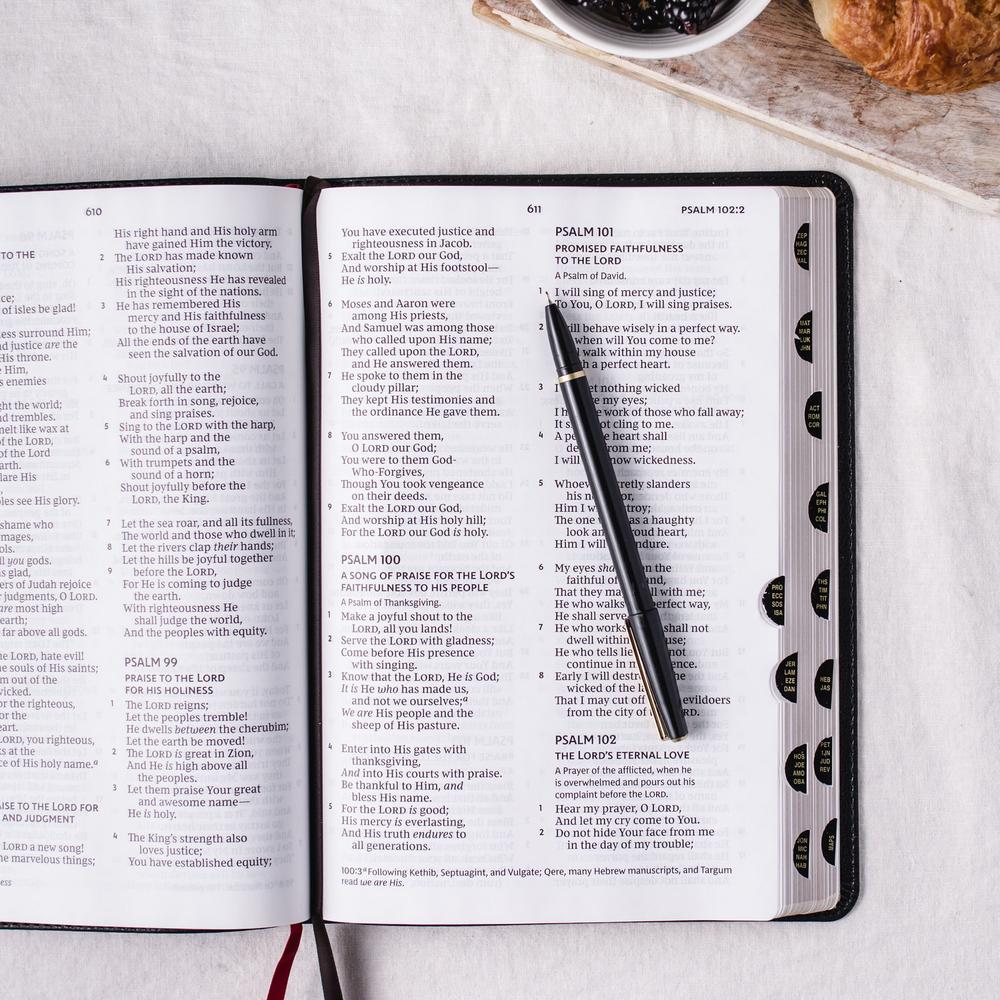 610
TO THE
ce;
of isles be glad!
ess surround Him;
nd justice are the
His throne.
e Him,
s enemies
ght the world;
nd trembles.
nelt like wax at
of the LORD
earth.
lare His
ples see His glory.
shame who
mages,
ols.
ll you gods.
s glad,
ers of Judah rejoice
r judgments, O LORD.
are most high
earth;
far above all gods.
he LORD, hate evil!
he souls of His saints;
m out of the
wicked.
or the righteous,
or the
eart.
LORD, you righteous,
ks at the
ce of His holy name.a
AISE TO THE LORD FOR
AND JUDGMENT
LORD a new song!
ne marvelous things;
ess
His right hand and His holy arm
have gained Him the victory.
2 The LORD has made known
His salvation;
His righteousness He has revealed
in the sight of the nations.
3 He has remembered His
mercy and His faithfulness
to the house of Israel;
All the ends of the earth have
seen the salvation of our God.
4 Shout joyfully to the
LORD, all the earth;
Break forth in song, rejoice,
and sing praises.
5 Sing to the LORD with the harp,
With the harp and the
sound of a psalm,
6 With trumpets and the
sound of a horn;
Shout joyfully before the
LORD, the King.
7 Let the sea roar, and all its fullness,
The world and those who dwell in it;
8 Let the rivers clap their hands;
Let the hills be joyful together
9 before the LORD,
For He is coming to judge
the earth.
With righteousness He
shall judge the world,
And the peoples with equity.
PSALM 99
PRAISE TO THE LORD
FOR HIS HOLINESS
1 The LORD reigns;
Let the peoples tremble!
He dwells between the cherubim;
Let the earth be moved!
2 The LORD is great in Zion,
And He is high above all
the peoples.
3 Let them praise Your great
and awesome name—
He is holy.
4 The King's strength also
loves justice;
You have established equity;
611
PSALM 102:2
You have executed justice and
righteousness in Jacob.
5 Exalt the LORD our God,
And worship at His footstool—
He is holy.
6 Moses and Aaron were
among His priests,
And Samuel was among those
who called upon His name;
They called upon the LORD,
and He answered them.
7 He spoke to them in the
cloudy pillar;
They kept His testimonies and
the ordinance He gave them.
8 You answered them,
O LORD our God;
You were to them God-
Who-Forgives,
Though You took vengeance
on their deeds.
9 Exalt the LORD our God,
And worship at His holy hill;
For the LORD our God is holy.
PSALM 100
A SONG OF PRAISE FOR THE LORD'S
FAITHFULNESS TO HIS PEOPLE
A Psalm of Thanksgiving.
1 Make a joyful shout to the
LORD, all you lands!
2 Serve the LORD with gladness;
Come before His presence
with singing.
3 Know that the LORD, He is God;
It is He who has made us,
and not we ourselves;a
We are His people and the
sheep of His pasture.
4 Enter into His gates with
thanksgiving,
And into His courts with praise.
Be thankful to Him, and
bless His name.
5 For the LORD is good;
His mercy is everlasting,
And His truth endures to
all generations.
100:3 a Following Kethib, Septuagint, and Vulgate; Qere, many Hebrew manuscripts, and Targum
read we are His.
PSALM 101
PROMISED FAITHFULNESS
TO THE LORD
A Psalm of David.
1 I will sing of mercy and justice;
To You, O LORD, I will sing praises.
2 will behave wisely in a perfect way.
when will You come to me?
walk within my house
a perfect heart.
3 set nothing wicked
my eyes;
I work of those who fall away;
It not cling to me.
4 A heart shall
from me;
I will know wickedness.
5 Whoever secretly slanders
his
Him I
The one has a haughty
look and proud heart,
Him I endure.
6 My eyes on the
faithful of
That they may with me;
He who walks perfect way,
He shall serve
7 He who works shall not
dwell within
He who tells not
continue in my presence.
8 Early I will destroy
wicked of the
That I may cut off evildoers
from the city of LORD.
PSALM 102
THE LORD'S ETERNAL LOVE
A Prayer of the afflicted, when he
is overwhelmed and pours out his
complaint before the LORD.
1 Hear my prayer, O LORD,
And let my cry come to You.
2 Do not hide Your face from me
in the day of my trouble;
ZEP
HAG
ZEC
MAL
MAT
MAR
LUK
JHN
ACT
ROM
COR
GAL
EPH
PHI
COL
PRO
ECC
SOS
ISA
THS
TIM
TIT
PHN
JER
LAM
EZE
DAN
HEB
JAS
HOS
JOE
AMO
OBA
PET
1JN
JUD
REV
JON
MIC
NAH
HAB
MAPS